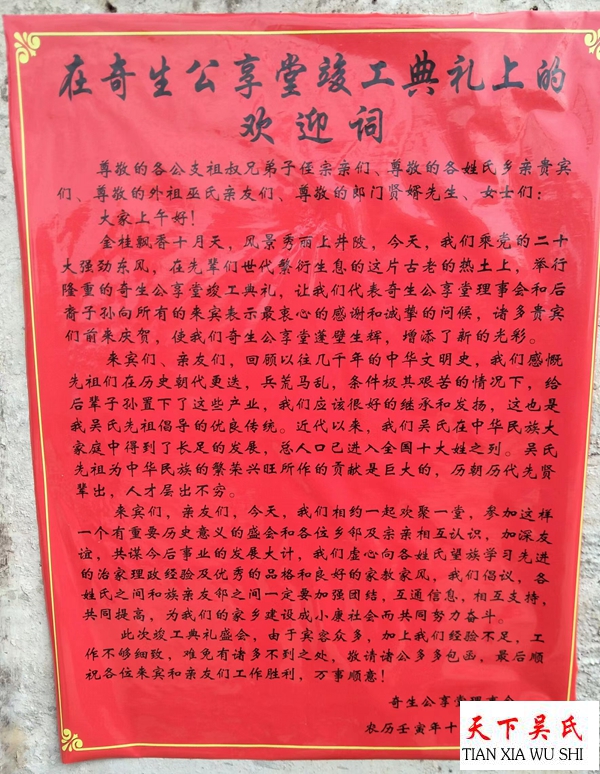 在奇生公享堂竣工典礼上的
欢迎词
尊敬的各公支祖叔兄弟子侄宗亲们、尊敬的各姓氏乡亲贵宾
们、尊敬的外祖巫氏亲友们、尊敬的郎门贤婿先生、女士们：
大家上午好！
金桂飘香十月天，风景秀丽上井陂，今天，我们乘党的二十
大强劲东风，在先辈们世代繁衍生息的这片古老的热土上，举行
隆重的奇生公享堂竣工典礼，让我们代表奇生公享堂理事会和后
裔子孙向所有的来宾表示最衷心的感谢和诚挚的问候，诸多贵宾
们前来庆贺，使我们奇生公享堂蓬壁生辉，增添了新的光彩。
来宾们、亲友们，回顾以往几千年的中华文明史，我们感慨
先祖们在历史朝代更迭，兵荒马乱，条件极其艰苦的情况下，给
后辈子孙置下了这些产业，我们应该很好的继承和发扬，这也是
我吴氏先祖倡导的优良传统。近代以来，我们吴氏在中华民族大
家庭中得到了长足的发展，总人口已进入全国十大姓之列。吴氏
先祖为中华民族的繁荣兴旺所作的贡献是巨大的，历朝历代先贤
辈出，人才层出不穷。
来宾们，亲友们，今天，我们相约一起欢聚一堂，参加这样
一个有重要历史意义的盛会和各位乡邻及宗亲相互认识，加深友
谊，共谋今后事业的发展大计，我们虚心向各姓氏望族学习先进
的治家理政经验及优秀的品格和良好的家教家风，我们倡议，各
姓氏之间和族亲友邻之间一定要加强团结，互通信息，相互支持，
共同提高，为我们的家乡建设成小康社会而共同努力奋斗。
此次竣工典礼盛会，由于宾客众多，加上我们经验不足，工
作不够细致，难免有诸多不到之处，敬请诸公多多包涵，最后顺
祝各位来宾和亲友们工作胜利，万事顺意！
奇生公享堂理事会
农历壬寅年十
天下吴氏
TIAN XIA WU SHI